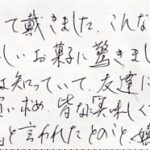 て戴きました。こんな
しいお菓子に驚きまし
は知っていて、友達に
買い求め、皆な美味しく
と言われたとのこと、嬉